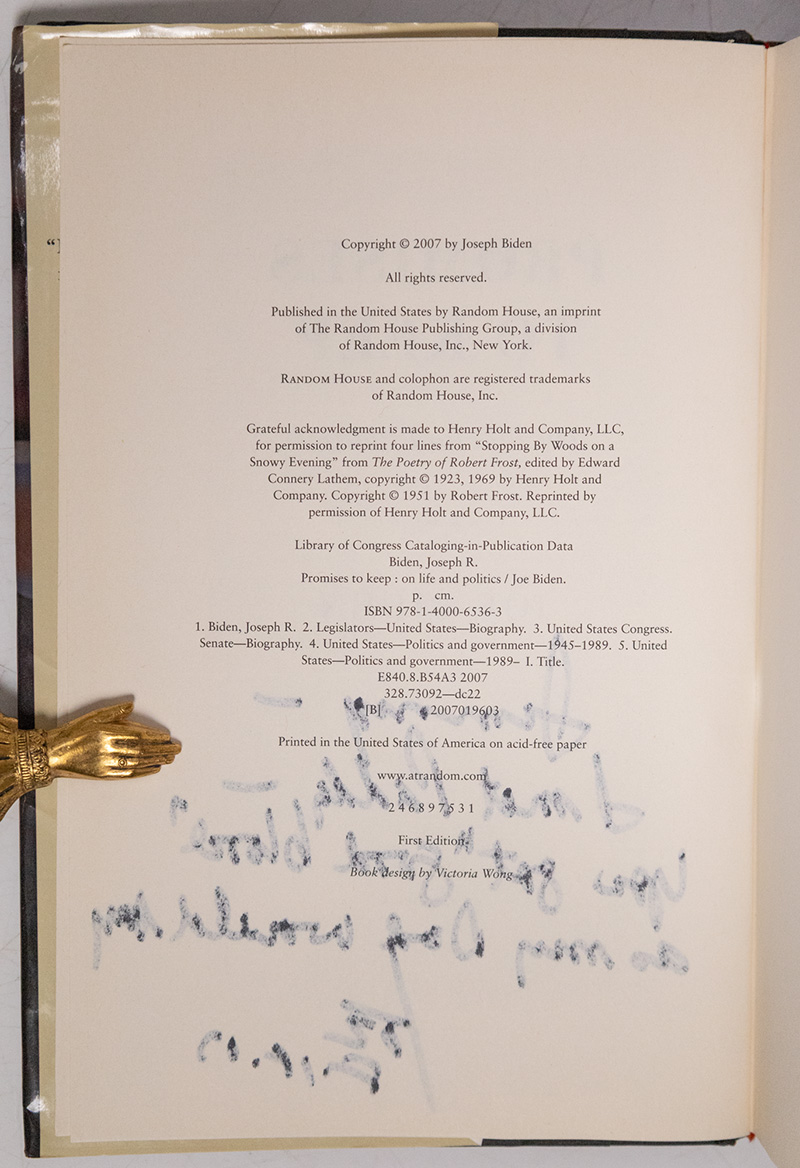 Copyright © 2007 by Joseph Biden
All rights reserved.
Published in the United States by Random House, an imprint
of The Random House Publishing Group, a division
of Random House, Inc., New York.
RANDOM HOUSE and colophon are registered trademarks
of Random House, Inc.
Grateful acknowledgment is made to Henry Holt and Company, LLC,
for permission to reprint four lines from “Stopping By Woods on a
Snowy Evening” from The Poetry of Robert Frost, edited by Edward
Connery Lathem, copyright © 1923, 1969 by Henry Holt and
Company. Copyright © 1951 by Robert Frost. Reprinted by
permission of Henry Holt and Company, LLC.
Library of Congress Cataloging-in-Publication Data
Biden, Joseph R.
Promises to keep : on life and politics / Joe Biden.
p. cm.
ISBN 978-1-4000-6536-3
1. Biden, Joseph R. 2. Legislators—United States—Biography. 3. United States Congress.
Senate—Biography. 4. United States—Politics and government—1945–1989. 5. United
States—Politics and government—1989– I. Title.
E840.8.B54A3 2007
328.73092—dc22
[B] 2007019603
Printed in the United States of America on acid-free paper
www.atrandom.com
2 4 6 8 9 7 5 3 1
First Edition
Book design by Victoria Wong
you got good blood”
as my Dad would say